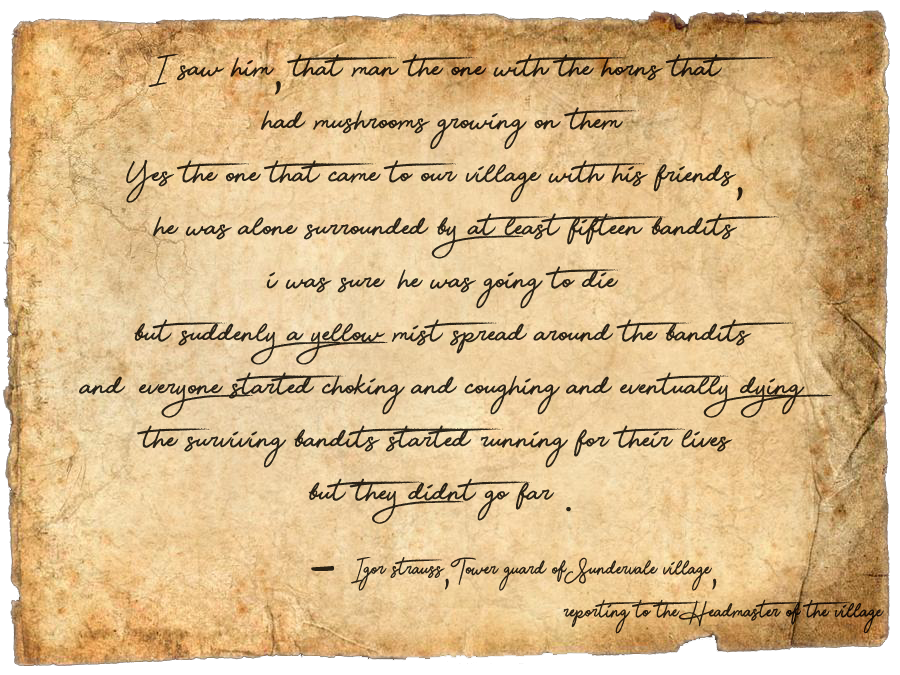 I saw him, that man the one with the horns that
had mushrooms growing on them
Yes the one that came to our village with his friends,
he was alone surrounded by at least fifteen bandits
i was sure he was going to die
but suddenly a yellow mist spread around the bandits
and everyone started choking and coughing and eventually dying
the surviving bandits started running for their lives
but they didnt go far .
- Igor strauss, Tower guard of Sundervale village,
reporting to the Headmaster of the village